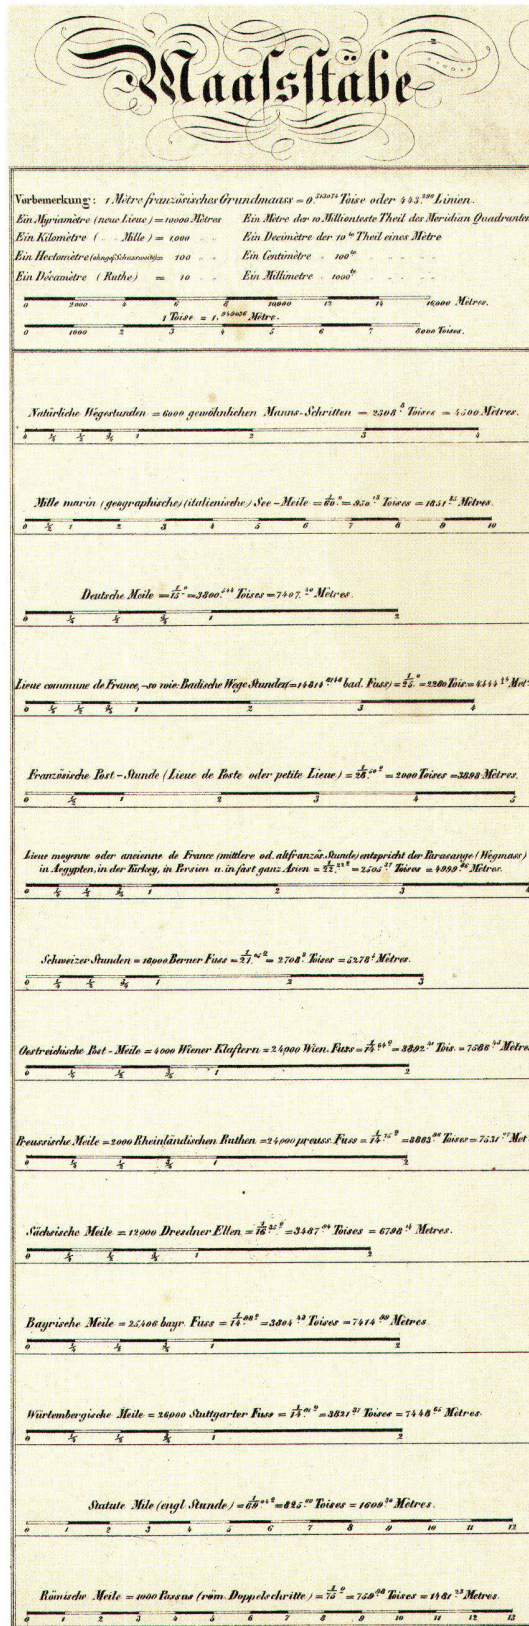 Maasſstäbe
Vorbemerkung: 1 Mètre französisches Grundmaass = 0,513074 Toise oder 443,296 Linien.
Ein Myriamètre (neue Lieue) = 10000 Mètres Ein Mètre der 10 Millionteste Theil des Meridian Quadranten
Ein Kilomètre ( „ Mille ) = 1,000 „ „ Ein Decimètre der 10te Theil eines Mètre
Ein Hectomètre = 100 „ „ Ein Centimètre „ 100te „
Ein Décamètre ( Ruthe ) = 10 „ „ Ein Millimetre „ 1000te „
0 2000 4 6 8 10000 12 14 16,000 Mètres.
1 Toise = 1,949036 Mètre.
0 1000 2 3 4 5 6 7 8000 Toises.
Natürliche Wegestunden = 6000 gewöhnlichen Manns-Schritten = 2308,8 Toises = 4500 Mètres.
0 1/4 1/2 3/4 1 2 3 4
Mille marin (geographische) (italienische) See-Meile = 1/60.0 = 950,13 Toises = 1851,85 Mètres.
0 1/2 1 2 3 4 5 6 7 8 9 10
Deutsche Meile = 1/15.0 = 3800,544 Toises = 7407,40 Mètres.
0 1/4 1/2 3/4 1 2
Lieue commune de France, so wie: Badische Wege Stunden (= 14814,8148 bad. Fuss) = 1/25.0 = 2280 Tois. = 4444,44 Met
0 1/4 1/2 3/4 1 2 3 4
Französische Post-Stunde (Lieue de Poste oder petite Lieue) = 1/28.50 = 2000 Toises = 3898 Mètres.
0 1/2 1 2 3 4 5
Lieue moyenne oder ancienne de France (mittlere od. altfranzös. Stunde) entspricht der Parasange (Wegmass)
in Aegypten, in der Türkey, in Persien u. in fast ganz Asien = 1/22.22 = 2565,37 Toises = 4999,96 Mètres.
0 1/4 1/2 3/4 1 2 3 4
Schweizer Stunden = 18,000 Berner Fuss = 1/21.05 = 2708,2 Toises = 5278,4 Mètres.
0 1/4 1/2 3/4 1 2 3
Oestreichische Post-Meile = 4000 Wiener Klaftern = 24,000 Wien. Fuss = 1/14.64 = 3892,41 Tois. = 7586,45 Mètres
0 1/4 1/2 3/4 1 2
Preussische Meile = 2000 Rheinländischen Ruthen = 24,000 preuss. Fuss = 1/14.75 = 3863,96 Toises = 7531,07 Met
0 1/4 1/2 3/4 1 2
Sächsische Meile = 12,000 Dresdner Ellen = 1/16.35 = 3487,94 Toises = 6798,14 Metres.
0 1/4 1/2 3/4 1 2
Bayrische Meile = 25,406 bayr. Fuss = 1/14.98 = 3804,43 Toises = 7414,99 Mètres
0 1/4 1/2 3/4 1 2
Würtembergische Meile = 26,000 Stuttgarter Fuss = 1/14.91 = 3821,37 Toises = 7448,65 Mètres.
0 1/4 1/2 3/4 1 2
Statute Mile (engl Stunde) = 1/69.04 = 825,60 Toises = 1609,30 Mètres.
0 1 2 3 4 5 6 7 8 9 10 11 12
Römische Meile = 1000 Passus (röm. Doppelschritte) = 1/75.0 = 759,98 Toises = 1481,23 Metres.
0 1 2 3 4 5 6 7 8 9 10 11 12 13